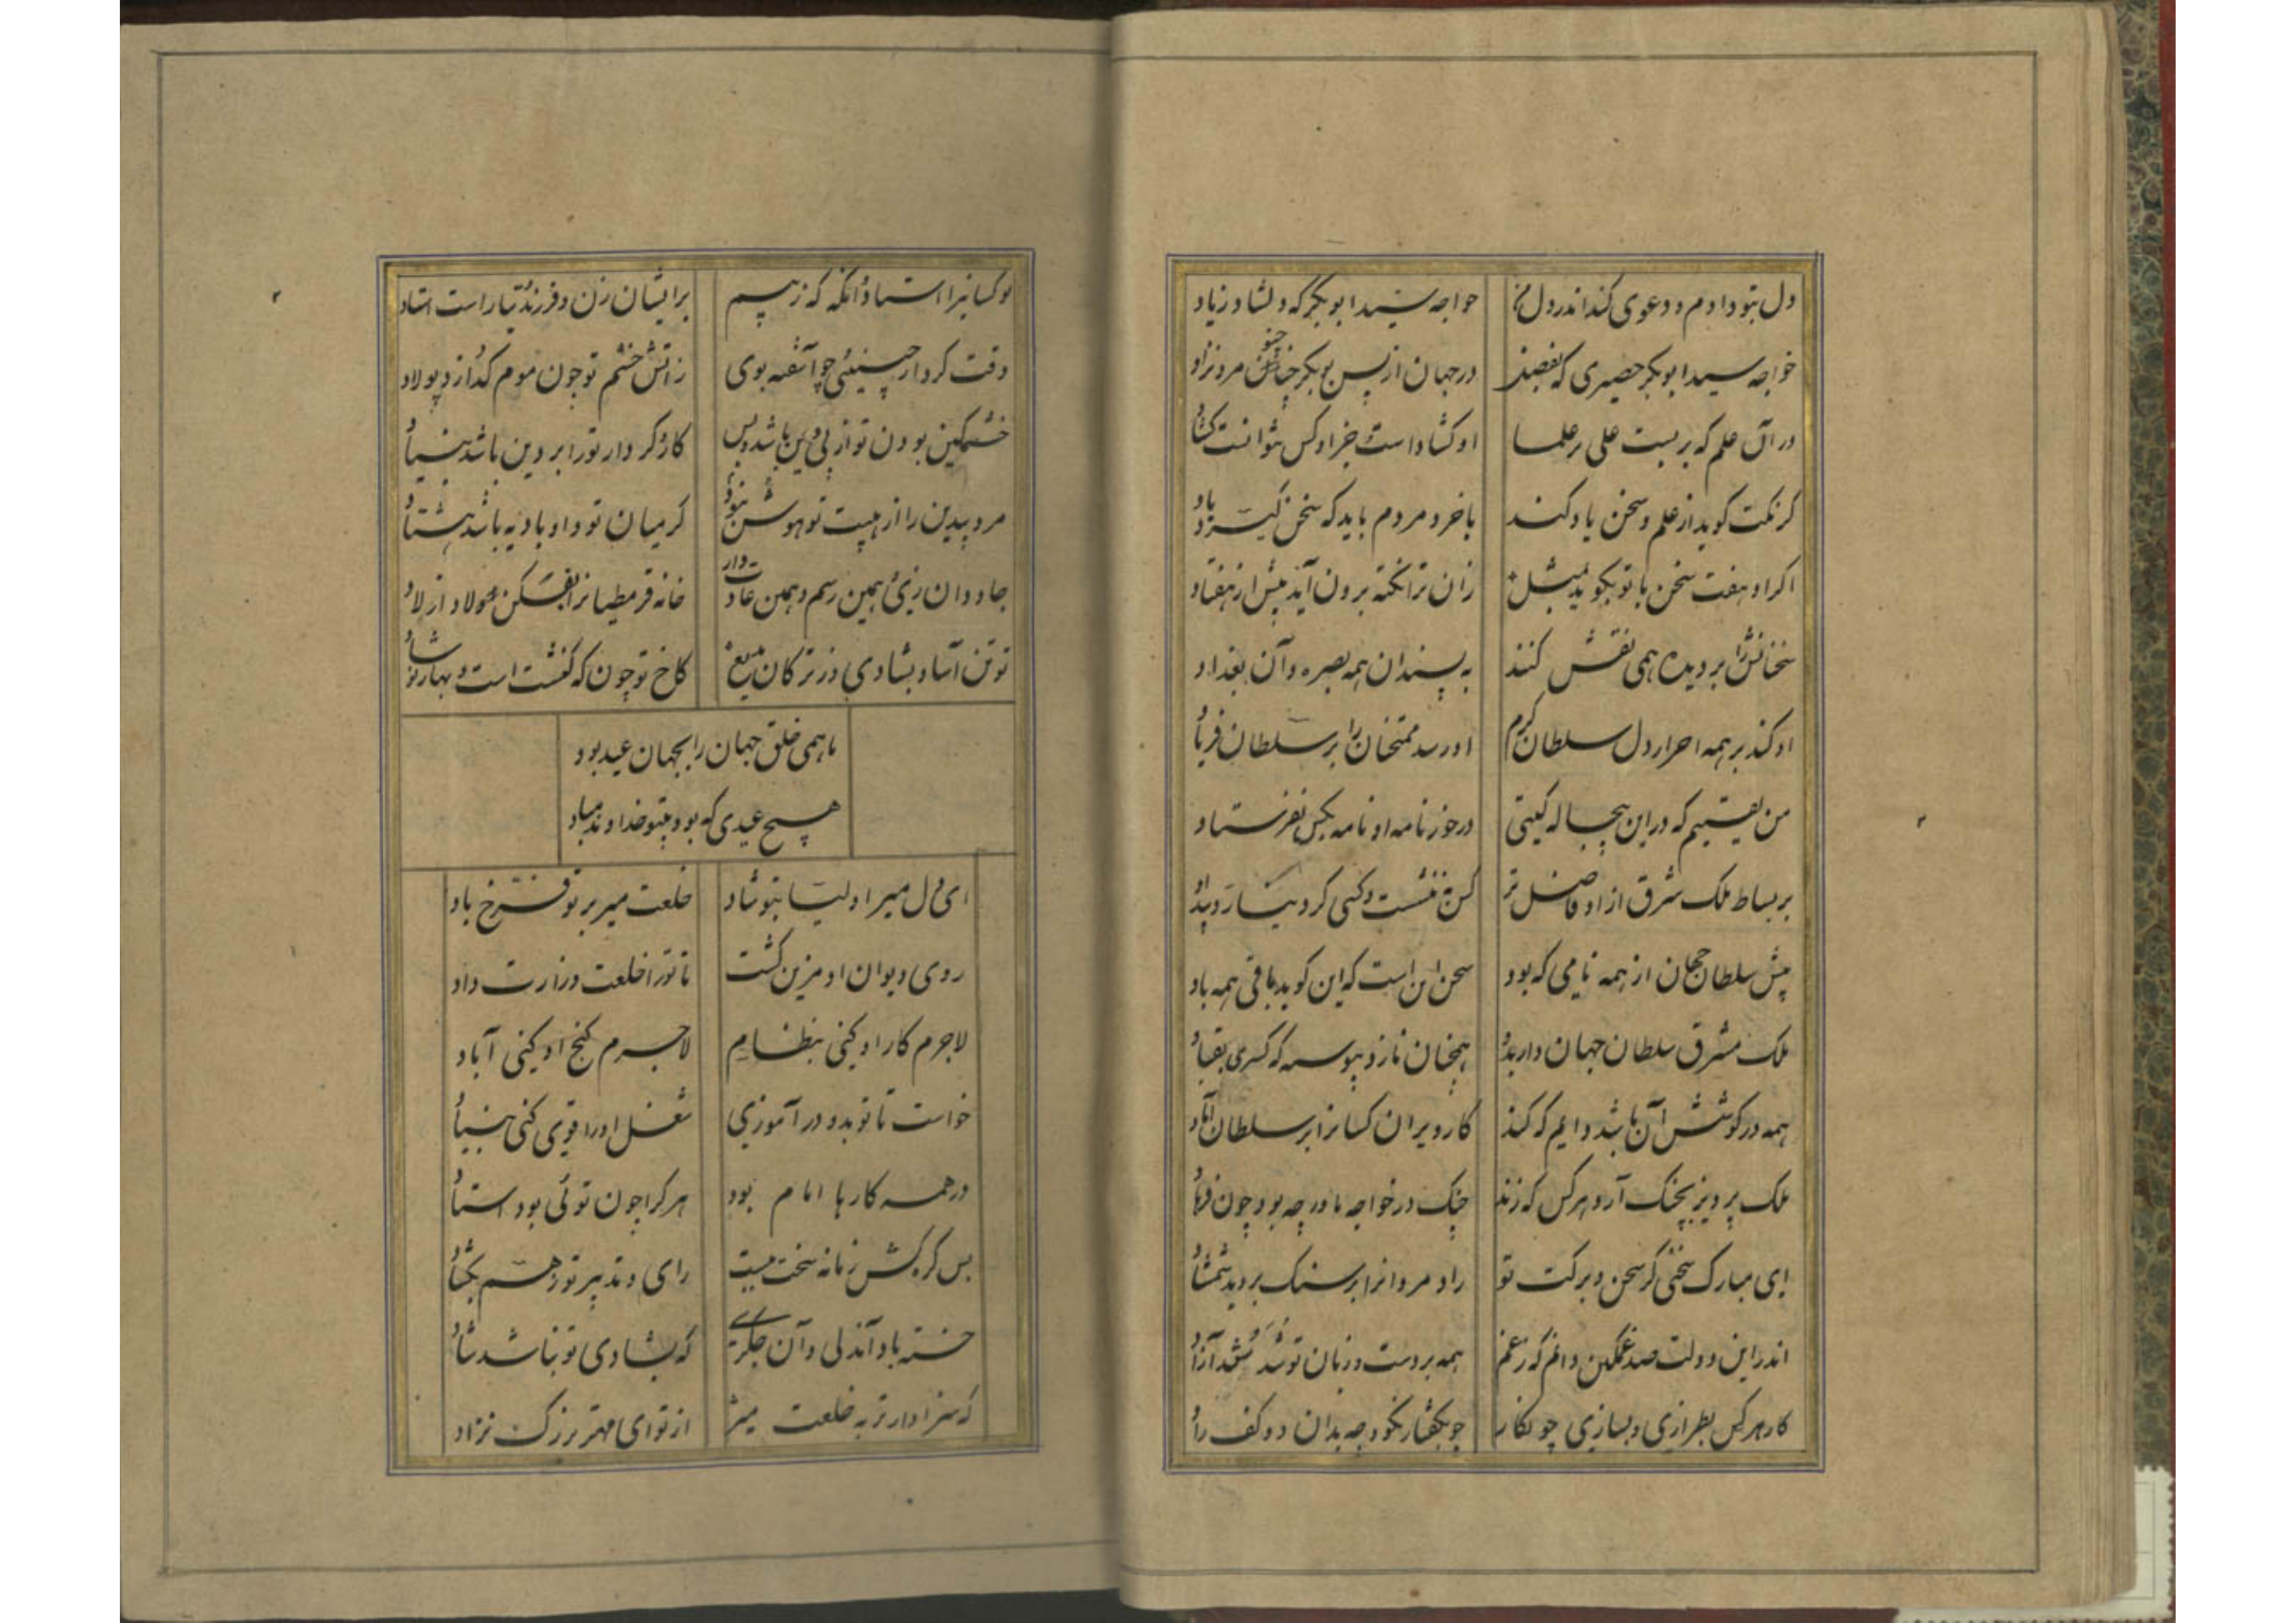 دل بتو دادم و دعوی کند اندر دل من
خواجه سید ابوبکر که دلشاد زیاد
خواجه سید ابوبکر حصیری که بفضل
در جهان از پس بوبکر چنو مرد نزاد
در آن علم که بر بست علی بر علما
او گشاد است جز او کس نتوانست گشاد
گر نکت گوید از علم و سخن یاد کند
با خرد مردم باید که سخن گیرد یاد
اگر او هفت سخن با تو بگوید بمثل
زان ترا نکته برون آید بیش از هفتاد
سخنانش را بر دیده همی نقش کنند
به پسندان همه بصره و آن بغداد
او کند بر همه احرار دل سلطان گرم
او رسد ممتحنان را بر سلطان فریاد
من یقینم که در این پنجاله گیتی
در خور نامه او نامه بکس نفرستاد
بر بساط ملک شرق از او فاضل تر
کس نه ننشست و کسی کرد نیارد بیداد
پیش سلطان جهان از همه نامی که بود
سخن این است که این گوید باقی همه باد
ملک مشرق سلطان جهان دارد
همچنان نازد پیوسته که کسری بقباد
همه در کوشش آن باشد دایم که کند
کار ویران کسانرا بر سلطان آباد
ملک پرویز بچنگ آرد هر کس که زند
چنگ در خواجه ما ور چه بود چون فرهاد
ای مبارک سخنی کز سخن و برکت تو
راد مردانرا بر سنک بروید شمشاد
اندر این دولت صد غمگین دانم که ز غم
همه بر دست و زبان تو شدستند آزاد
کار هر کس بطرازی و بسازی چو نگار
چو بگفتار نکو و چه بدان دو کف راد
نو کسانیرا استاد آنگه که ز بیم
بر ایشان زن و فرزند نیارست استاد
وقت کردار چنینی چو آشفته بوی
زاتش خشم تو چون موم گدازد پولاد
خشمگین بودن تو از پی دین باشد و بس
کار و کردار تو را بر دین باشد بنیاد
مرد بیدین را از هیبت تو هوش نبود
گر میان تو و او بادیه باشد هشتاد
جاودان زی همین رسم و همین عادت دار
خانه قرمطیانرا بفکن لاد از لاد
تو تن آسا و بشادی و ز ترکان بدیع
کاخ تو چون که کنشت است و بهار نوشاد
تا همی خلق جهان را بجهان عید بود
هیچ عیدی که بود بیتو خداوند مباد
ای دل میر اولیا بتو شاد
خلعت میر بر تو فرخ باد
روی دیوان او مزین گشت
تا تو را خلعت وزارت داد
لاجرم کار او کنی بنظام
لاجرم گنج او کنی آباد
خواست تا تو بدو در آموزی
شغل او را قوی کنی بنیاد
در همه کارها امام بود
هر کرا چون توئی بود استاد
بس گره کش زمانه سخت ببست
رای و تدبیر تو ز هم بگشاد
خسته باد آندلی و آن جگری
که بشادی تو نباشد شاد
که سزاوارتر به خلعت میر
از تو ای مهتر بزرگ نژاد